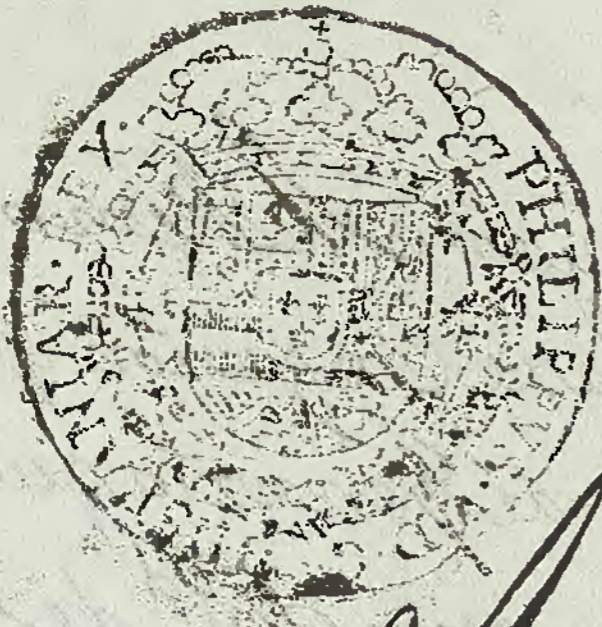 PHILIPPVS · D · HISPANIAR · REX ·